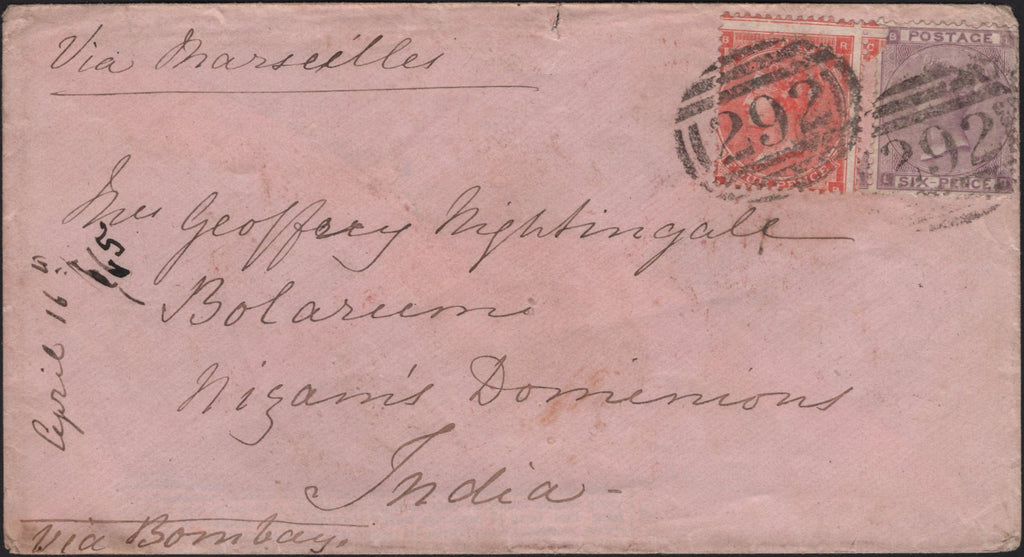 Via Marseilles
POSTAGE
292
292
FOUR PENCE
SIX-PENCE
Mrs Geoffrey Nightingale
Bolarum
Nizam's Dominions
India
April 16
via Bombay.